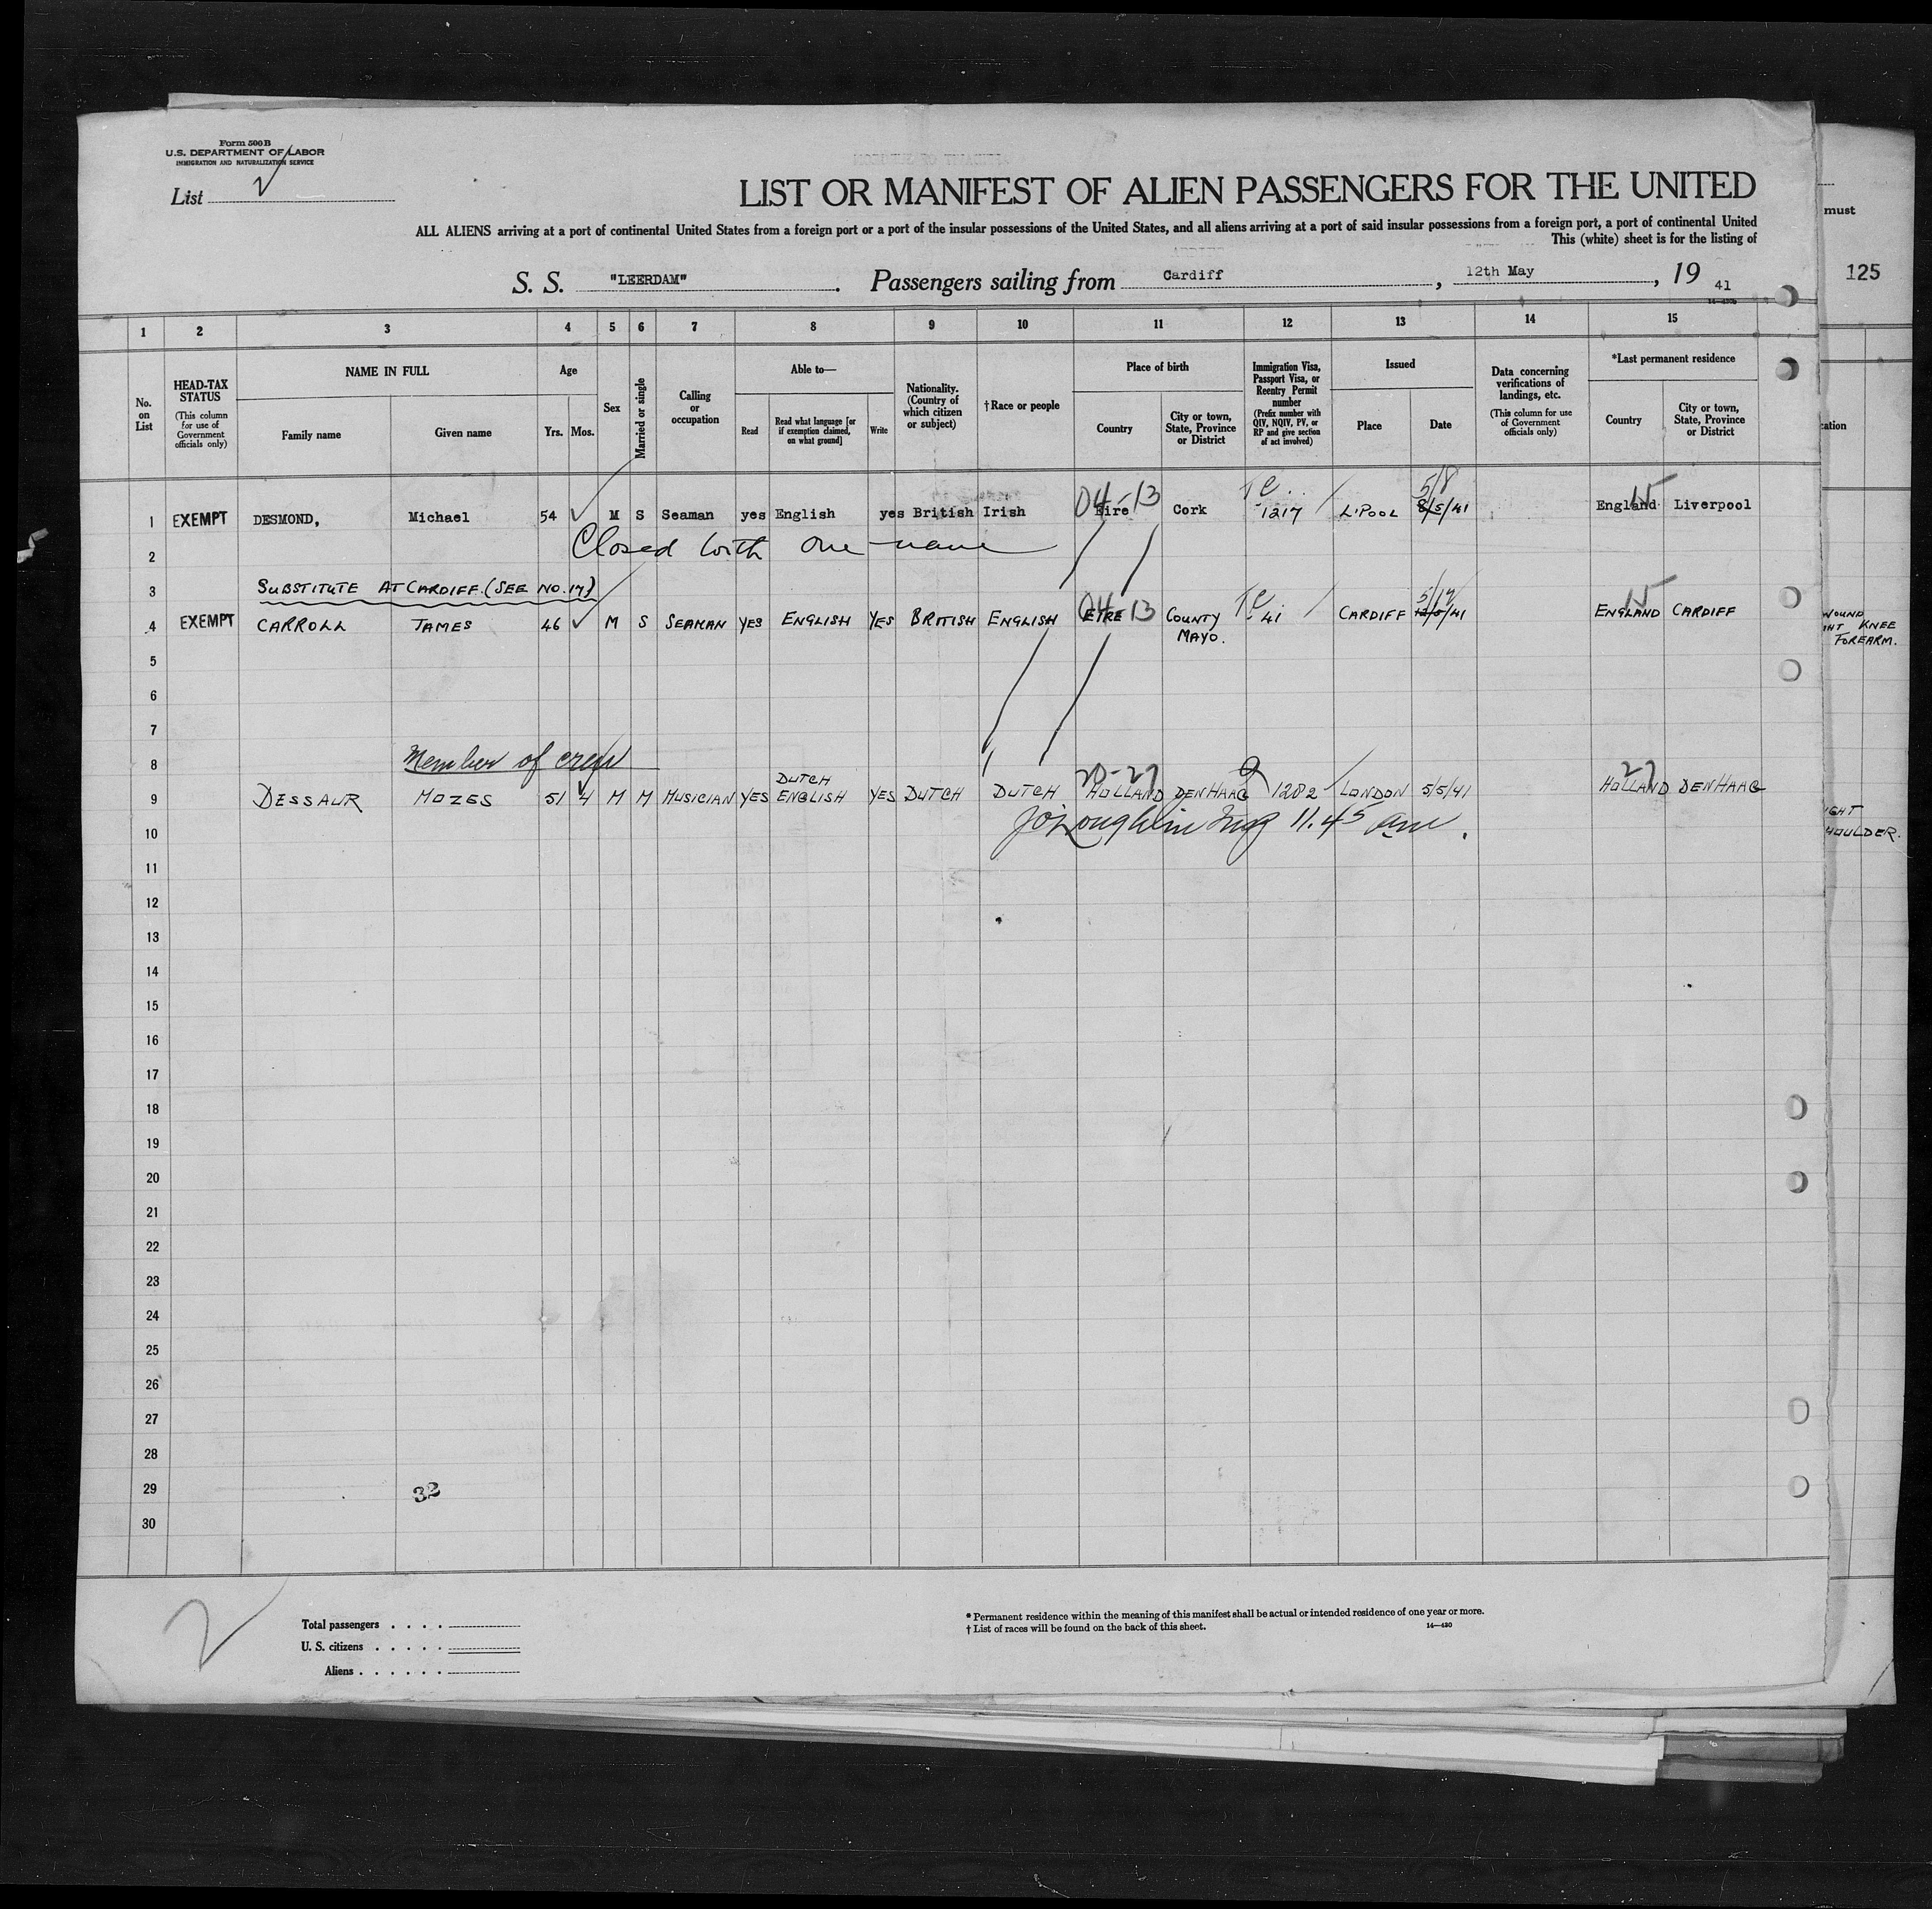 Form 500 B
U.S. DEPARTMENT OF LABOR
IMMIGRATION AND NATURALIZATION SERVICE
List 2
LIST OR MANIFEST OF ALIEN PASSENGERS FOR THE UNITED
ALL ALIENS arriving at a port of continental United States from a foreign port or a port of the insular possessions of the United States, and all aliens arriving at a port of said insular possessions from a foreign port, a port of continental United
This (white) sheet is for the listing of
must
125
S. S. "LEERDAM". Passengers sailing from Cardiff, 12th May, 19 41
1 2 3 4 5 6 7 8 9 10 11 12 13 14 15
No. on List
HEAD-TAX STATUS (This column for use of Government officials only)
NAME IN FULL
Family name Given name
Age
Yrs. Mos.
Sex
Married or single
Calling or occupation
Able to—
Read
Read what language [or if exemption claimed, on what ground]
Write
Nationality. (Country of which citizen or subject)
† Race or people
Place of birth
Country
City or town, State, Province or District
Immigration Visa, Passport Visa, or Reentry Permit number (Prefix number with QIV, NQIV, PV, or RP and give section of act involved)
Issued
Place Date
Data concerning verifications of landings, etc. (This column for use of Government officials only)
*Last permanent residence
Country
City or town, State, Province or District
04-13 5/8
1 EXEMPT DESMOND, Michael 54 M S Seaman yes English yes British Irish Eire Cork 1217 L'POOL 8/5/41 England Liverpool
2 Closed with one name
3 SUBSTITUTE AT CARDIFF. (SEE NO. 17)
04 13
4 EXEMPT CARROLL JAMES 46 M S SEAMAN YES ENGLISH YES BRITISH ENGLISH EIRE COUNTY MAYO. 41 CARDIFF 12/5/41 ENGLAND CARDIFF
WOUND
KNEE
FOREARM.
5
6
7
8 Member of crew
20-27 27
9 DESSAUR MOZES 51 4 M M MUSICIAN YES DUTCH ENGLISH YES DUTCH DUTCH HOLLAND DEN HAAG 1282 LONDON 5/5/41 HOLLAND DEN HAAG
10 11.45 am.
11
12
13
14
15
16
17
18
19
20
21
22
23
24
25
26
27
28
29 32
30
2
Total passengers
U. S. citizens
Aliens
* Permanent residence within the meaning of this manifest shall be actual or intended residence of one year or more.
† List of races will be found on the back of this sheet.
14—430